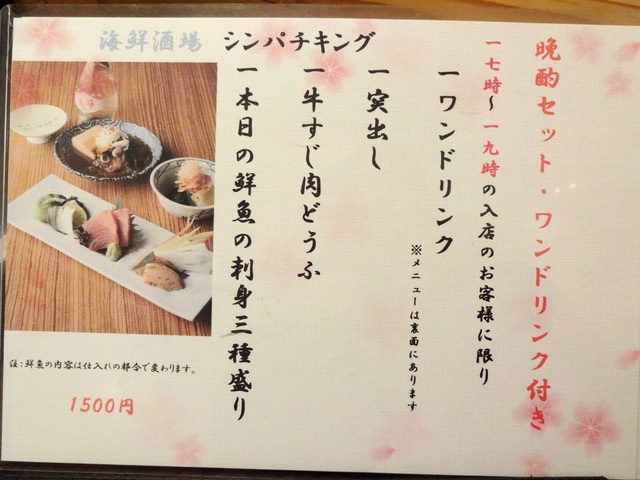 晩酌セット・ワンドリンク付き
一七時～一九時の入店のお客様に限り
一ワンドリンク
※メニューは裏面にあります
一突出し
一牛すじ肉どうふ
一本日の鮮魚の刺身三種盛り
海鮮酒場 シンパチキング
注:鮮魚の内容は仕入れの都合で変わります。
1500円